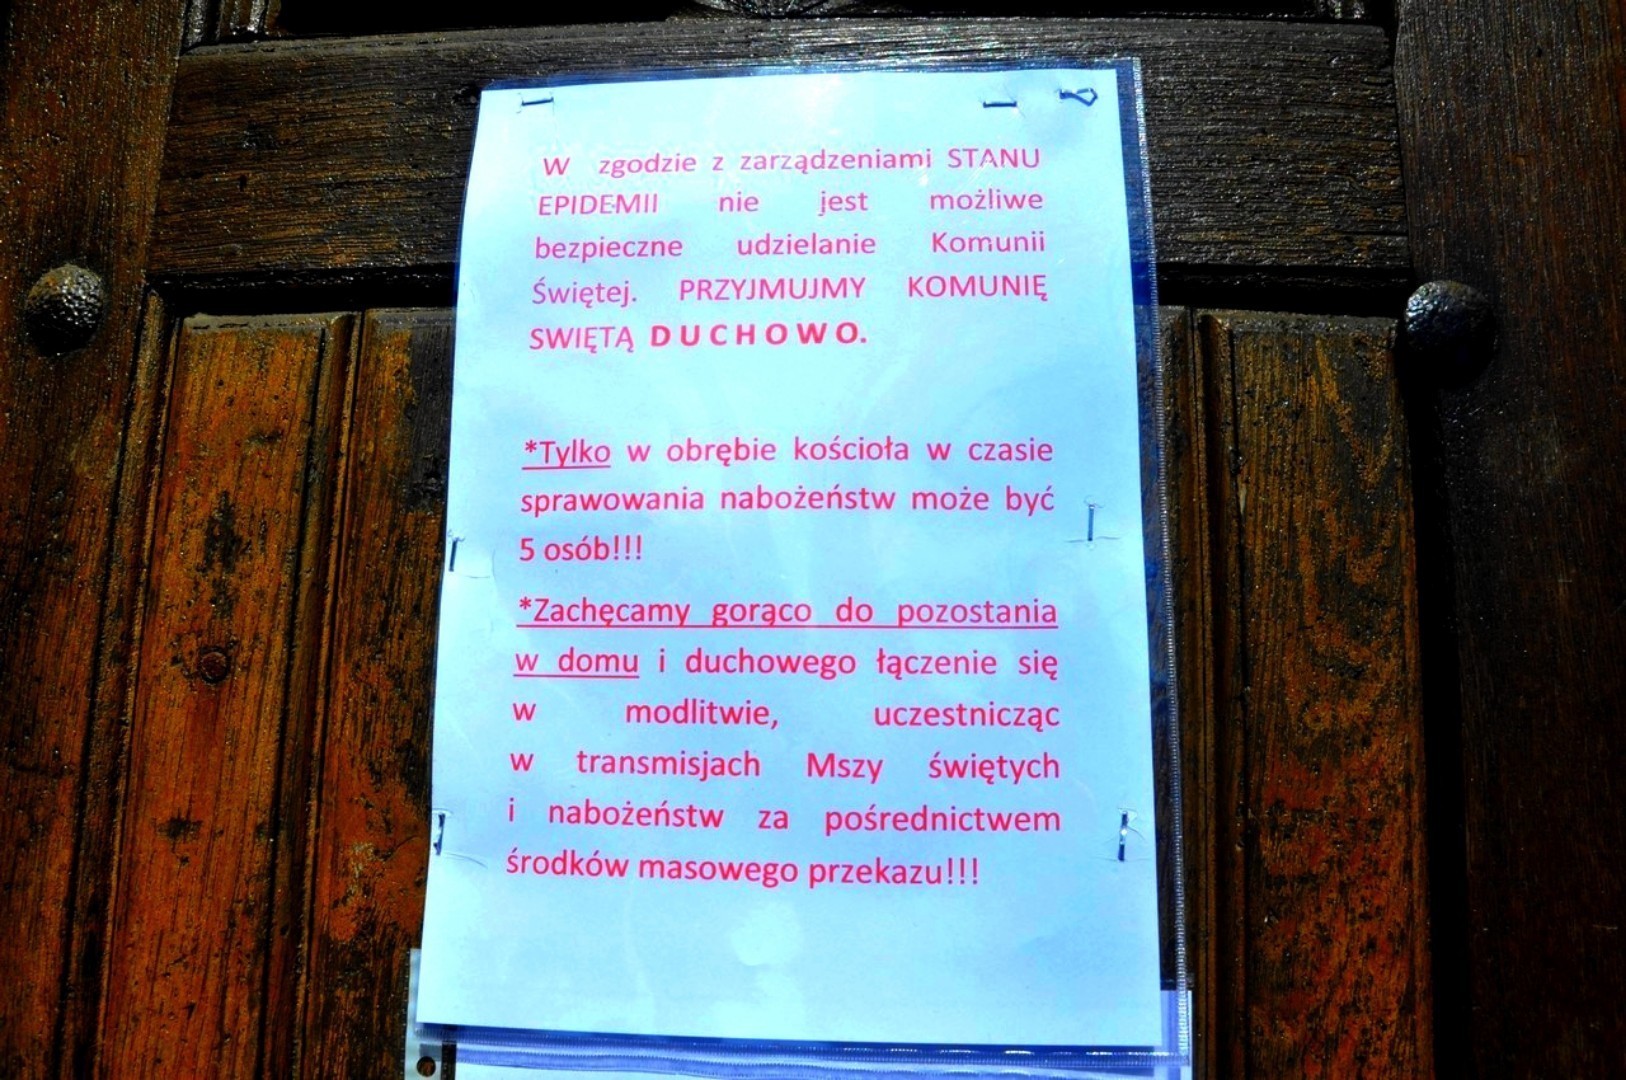 W zgodzie z zarządzeniami STANU
EPIDEMII nie jest możliwe
bezpieczne udzielanie Komunii
Świętej. PRZYJMUJMY KOMUNIĘ
SWIĘTĄ DUCHOWO.
*Tylko w obrębie kościoła w czasie
sprawowania nabożeństw może być
5 osób!!!
*Zachęcamy gorąco do pozostania
w domu i duchowego łączenie się
w modlitwie, uczestnicząc
w transmisjach Mszy świętych
i nabożeństw za pośrednictwem
środków masowego przekazu!!!